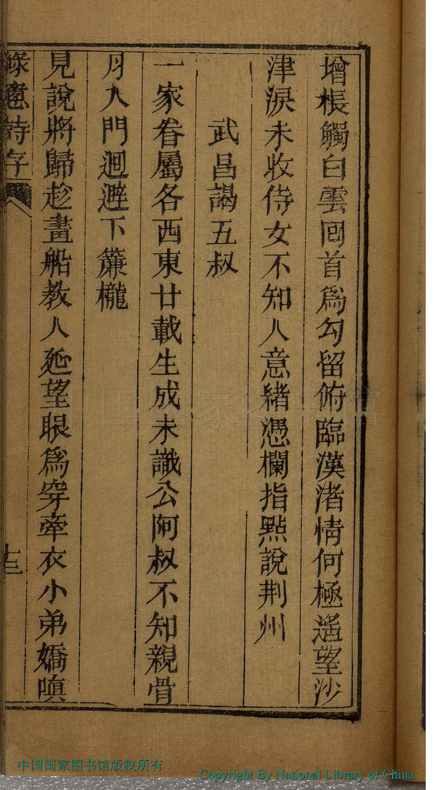 增悵觸白雲回首為勾留俯臨漢渚情何極遥望沙
津淚未收侍女不知人意緒憑欄指點說荆州
武昌謁五叔
一家眷屬各西東廿載生成未識公阿叔不知親骨
月入門迴避下簾櫳
見說將歸趁畫船教人延望眼為穿牽衣小弟嬌嗔
詩存
十三
中国国家图书馆版权所有
Copyright By National Library of China